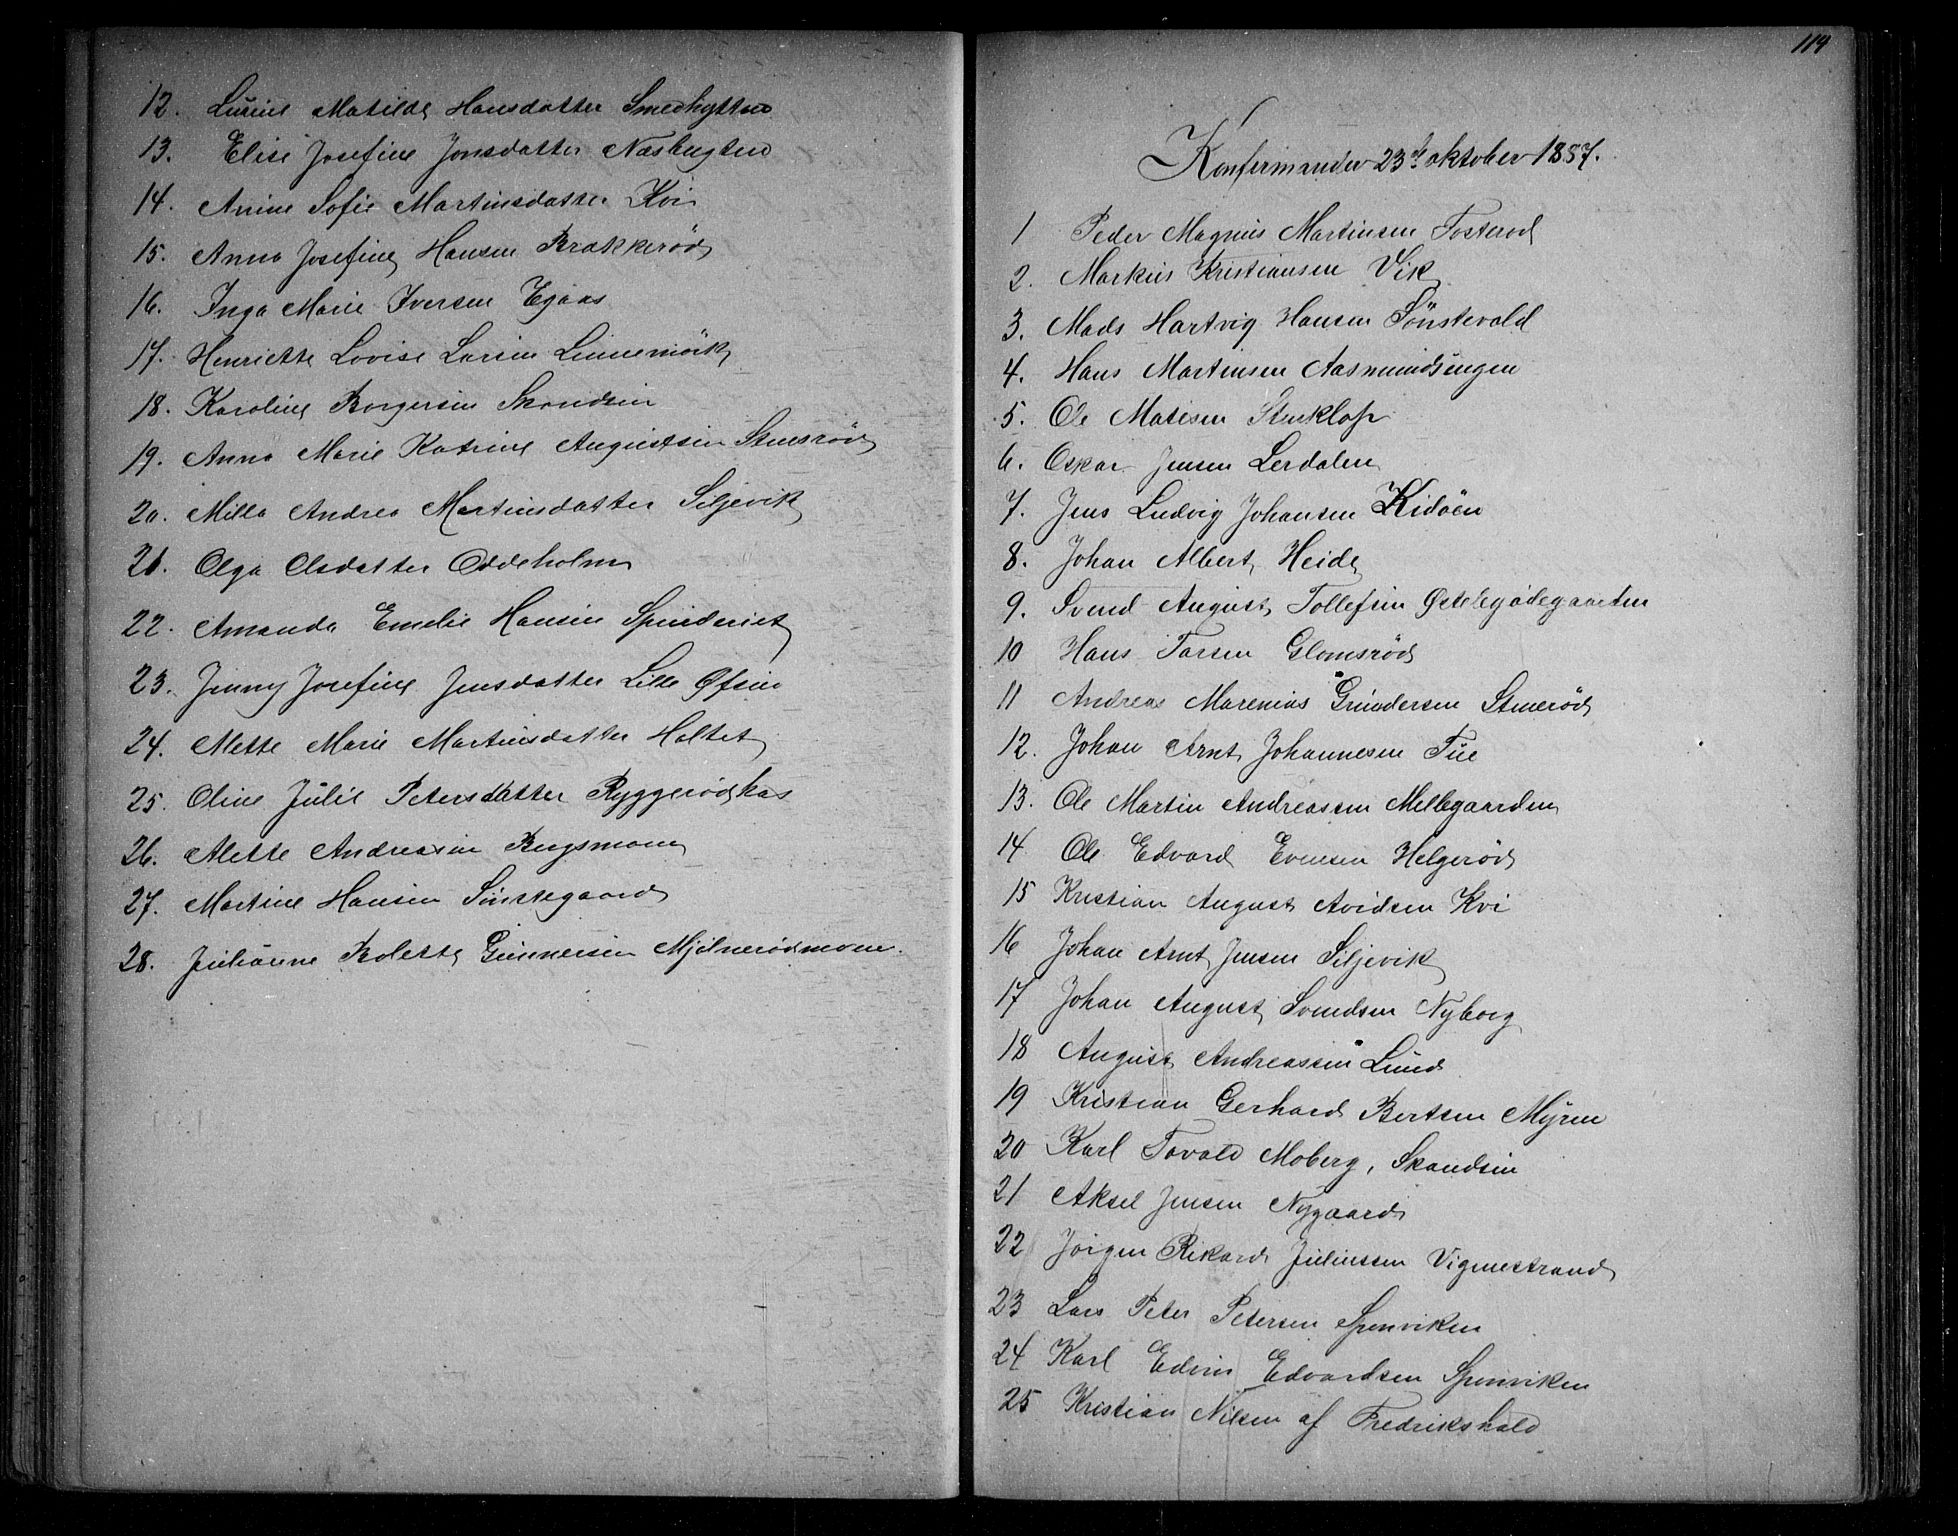 12. Lurine Matilde Hansdatter Smedhytten
13. Elise Josefine Jonsdatter Næsbugten
14. Anine Sofie Martinsdatter Kvi
15. Anna Josefine Hansen Brakkerød
16. Inga Marie Iversen Egaas
17. Henriette Lovise Larsen Linnemörk
18. Karoline Borgersen Skandsen
19. Anna Marie Katrine Augustsen Stensrød
20. Milla Andrea Martinsdatter Siljevik
21. Olga Olsdatter Oddeholm
22. Amanda Emelie Hansen
23. Jenny Josefine Jensdatter Lille Øfsen
24. Mette Marie Martinsdatter Holtet
25. Oline Julie Petersdatter Ryggerødkas
26. Mette Andreasen Bugsmoen
27. Martine Hansen Sinstegaard
28. Julianne Bolette Gunnersen Mjölnerødmoen.
114
Konfirmander 23de oktober 1887.
1 Peder Magnus Martinsen Tosterød
2. Markus Kristiansen Vik
3. Mads Hartvig Hansen Sönstevold
4. Hans Martinsen Aasmundsengen
5. Ole Matisen Stenklop
6. Oskar Jensen Lerdalen
7. Jens Ludvig Johansen Kidöen
8. Johan Albert Heide
9. Svend August Tollefsen Østebyødegaarden
10 Hans Larsen Glomsrød
11 Andreas Marenius Gundersen Stenerød
12. Johan Arnt Johannesen Tue
13. Ole Martin Andreassen Mellegaarden
14 Ole Edvard Evensen Helgerød
15 Kristian August Avidsen Kvi
16 Johan Arnt Jensen Siljevik
17 Johan August Svendsen Nyborg
18 August Andreassen Lund
19 Kristian Gerhard Bertsen Myren
20 Karl Tovald Moberg, Skandsen
21 Aksel Jensen Nygaard
22 Jörgen Rikard Juliussen Vigenestrand
23 Lars Peter Petersen Sponviken
24 Karl Edvin Edvardsen Sponviken
25 Kristian Nilsen af Fredrikshald